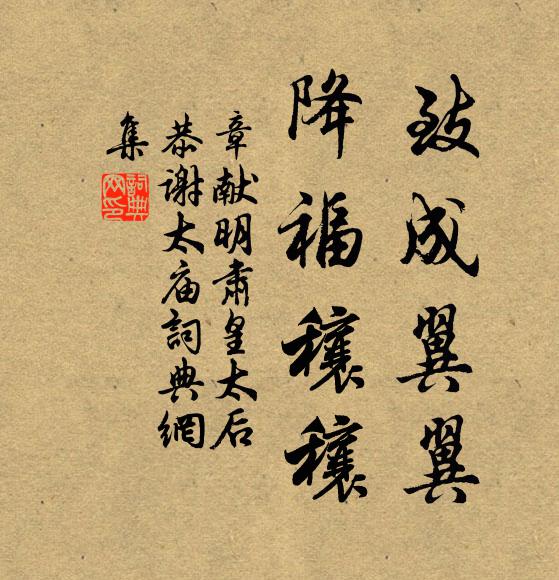 致成翼翼
降福穰穰
章献明肃皇太后
恭谢太庙詞典網
集
詞典網印